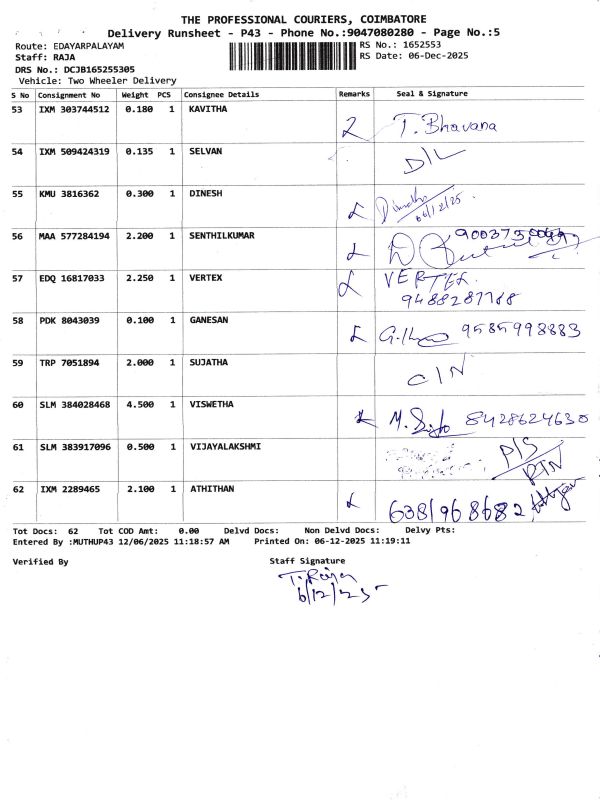 THE PROFESSIONAL COURIERS, COIMBATORE
Delivery Runsheet - P43 - Phone No.:9047080280 - Page No.:5
Route: EDAYARPALAYAM RS No.: 1652553
Staff: RAJA RS Date: 06-Dec-2025
DRS No.: DCJB165255305
Vehicle: Two Wheeler Delivery
S No Consignment No Weight PCS Consignee Details Remarks Seal & Signature
53 IXM 303744512 0.180 1 KAVITHA T. Bhavana
54 IXM 509424319 0.135 1 SELVAN D/L
55 KMU 3816362 0.300 1 DINESH 06/12/25.
56 MAA 577284194 2.200 1 SENTHILKUMAR
57 EDQ 16817033 2.250 1 VERTEX VERTEX.
9488287768
58 PDK 8043039 0.100 1 GANESAN 9585998883
59 TRP 7051894 2.000 1 SUJATHA C/N
60 SLM 384028468 4.500 1 VISWETHA 8428624630
61 SLM 383917096 0.500 1 VIJAYALAKSHMI P/S
RTN
62 IXM 2289465 2.100 1 ATHITHAN 6381968682
Tot Docs: 62 Tot COD Amt: 0.00 Delvd Docs: Non Delvd Docs: Delvy Pts:
Entered By :MUTHUP43 12/06/2025 11:18:57 AM Printed On: 06-12-2025 11:19:11
Verified By Staff Signature
T. Raja
6/12/25